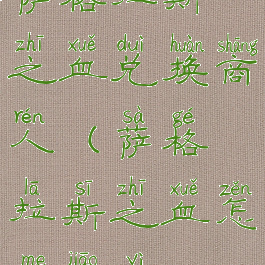 zhī xuě duì huàn shāng
之血兑换商
rén sà gé
人（萨格
lā sī zhī xuě zěn
拉斯之血怎
me jiāo yì